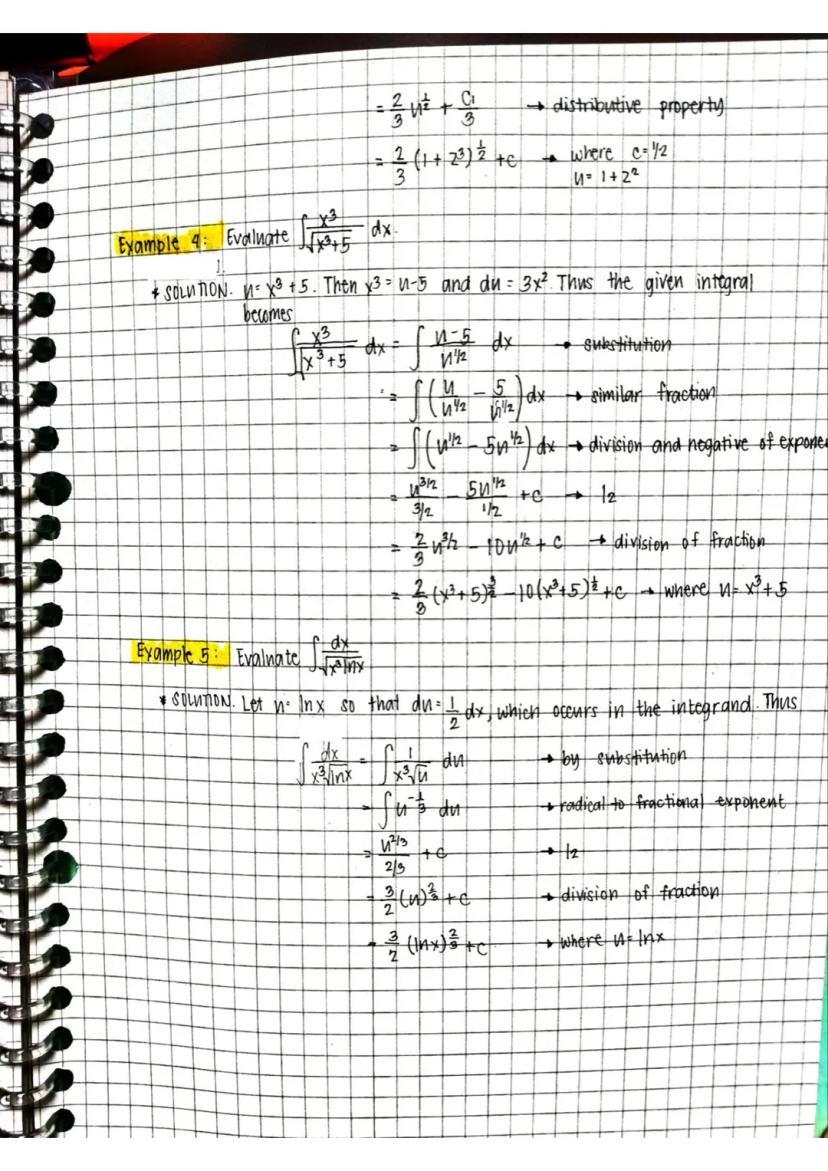 = 2/3 u^(1/2) + C₁/3 → distributive property
= 2/3 (1 + z³)^(1/2) + c → where c = 1/2
u = 1 + z²
Example 4: Evaluate ∫ x³/√(x³+5) dx.
* SOLUTION. u = x³ + 5. Then x³ = u-5 and du = 3x². Thus the given integral
becomes
∫ x³/√(x³+5) dx = ∫ (u-5)/u^(1/2) dx → substitution
= ∫ (u/u^(1/2) - 5/u^(1/2)) dx → similar fraction
= ∫ (u^(1/2) - 5u^(1/2)) dx → division and negative of expone
= u^(3/2)/(3/2) - 5u^(1/2)/(1/2) + c → I2
= 2/3 u^(3/2) - 10u^(1/2) + c → division of fraction
= 2/3 (x³+5)^(3/2) - 10(x³+5)^(1/2) + c → where u = x³+5
Example 5: Evaluate ∫ dx/√(x³ lnx)
* SOLUTION. Let u = lnx so that du = 1/2 dx, which occurs in the integrand. Thus
∫ dx/(x³√lnx) = ∫ 1/(x³√u) du → by substitution
= ∫ u^(-1/3) du → radical to fractional exponent
= u^(2/3)/(2/3) + c → I2
= 3/2 (u)^(2/3) + c → division of fraction
= 3/2 (lnx)^(2/3) + c → where u = lnx